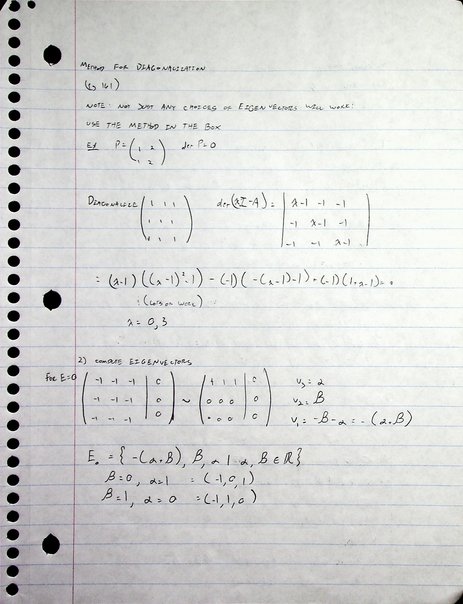 METHOD FOR DIAGONALIZATION
(Pg 161)
NOTE: NOT JUST ANY CHOICES OF EIGENVECTORS WILL WORK!
USE THE METHOD IN THE BOX
EX P = ( 1 2 ; 1 2 ) det P = 0
DIAGONALIZE ( 1 1 1 ; 1 1 1 ; 1 1 1 ) det(λI-A) = | λ-1 -1 -1 ; -1 λ-1 -1 ; -1 -1 λ-1 |
= (λ-1)((λ-1)²-1) - (-1)(-(λ-1)-1) + (-1)(1+λ-1) = 0
: (LOTS OF WORK)
λ = 0, 3
2) COMPUTE EIGENVECTORS
FOR E=0 ( -1 -1 -1 | 0 ; -1 -1 -1 | 0 ; -1 -1 -1 | 0 ) ~ ( 1 1 1 | 0 ; 0 0 0 | 0 ; 0 0 0 | 0 ) v₃ = α
v₂ = β
v₁ = -β-α = -(α+β)
E₀ = { -(α+β), β, α | α, β ∈ ℝ }
β=0, α=1 = (-1,0,1)
β=1, α=0 = (-1,1,0)